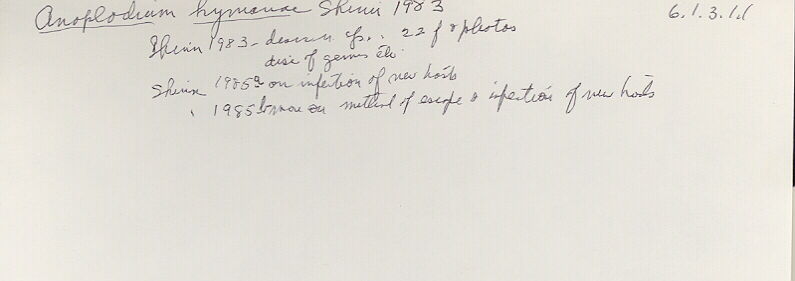 Anoplodium hymanae Shinn 1983 6.1.3.1.1
Shinn 1983 - descr. sp. 22 f & photos
disc of genus etc.
Shinn 1985a on infection of new hosts
" 1985b more on method of escape & infection of new hosts